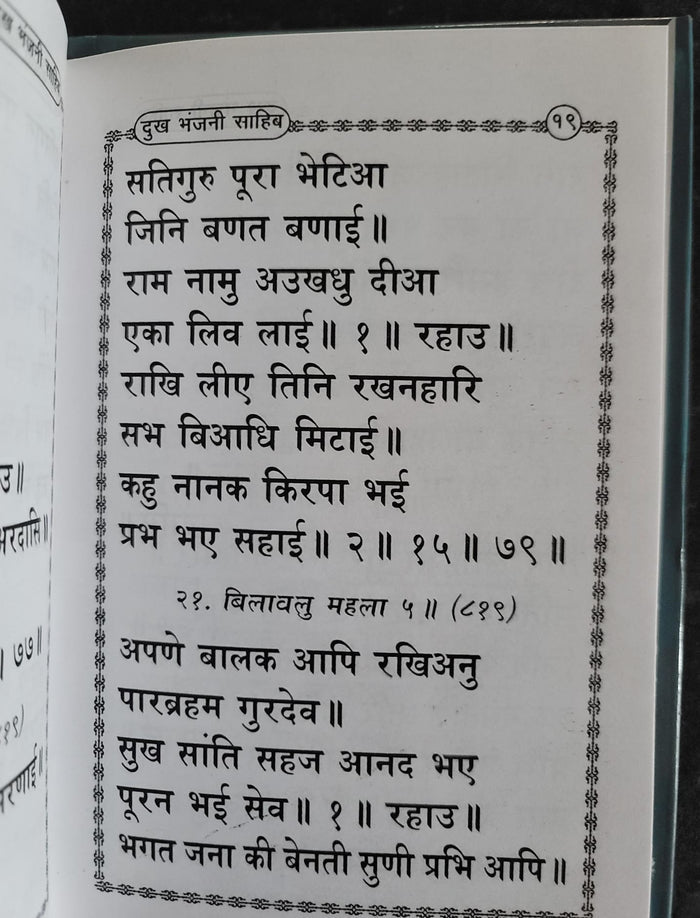 दुख भंजनी साहिब
१९
सतिगुरु पूरा भेटिआ
जिनि बणत बणाई॥
राम नामु अउखधु दीआ
एका लिव लाई॥ १॥ रहाउ॥
राखि लीए तिनि रखनहारि
सभ बिआधि मिटाई॥
कहु नानक किरपा भई
प्रभ भए सहाई॥ २॥ १५॥ ७९॥
२१. बिलावलु महला ५॥ (८१९)
अपणे बालक आपि रखिअनु
पारब्रहम गुरदेव॥
सुख सांति सहज आनद भए
पूरन भई सेव॥ १॥ रहाउ॥
भगत जना की बेनती सुणी प्रभि आपि॥
उ॥
७७॥